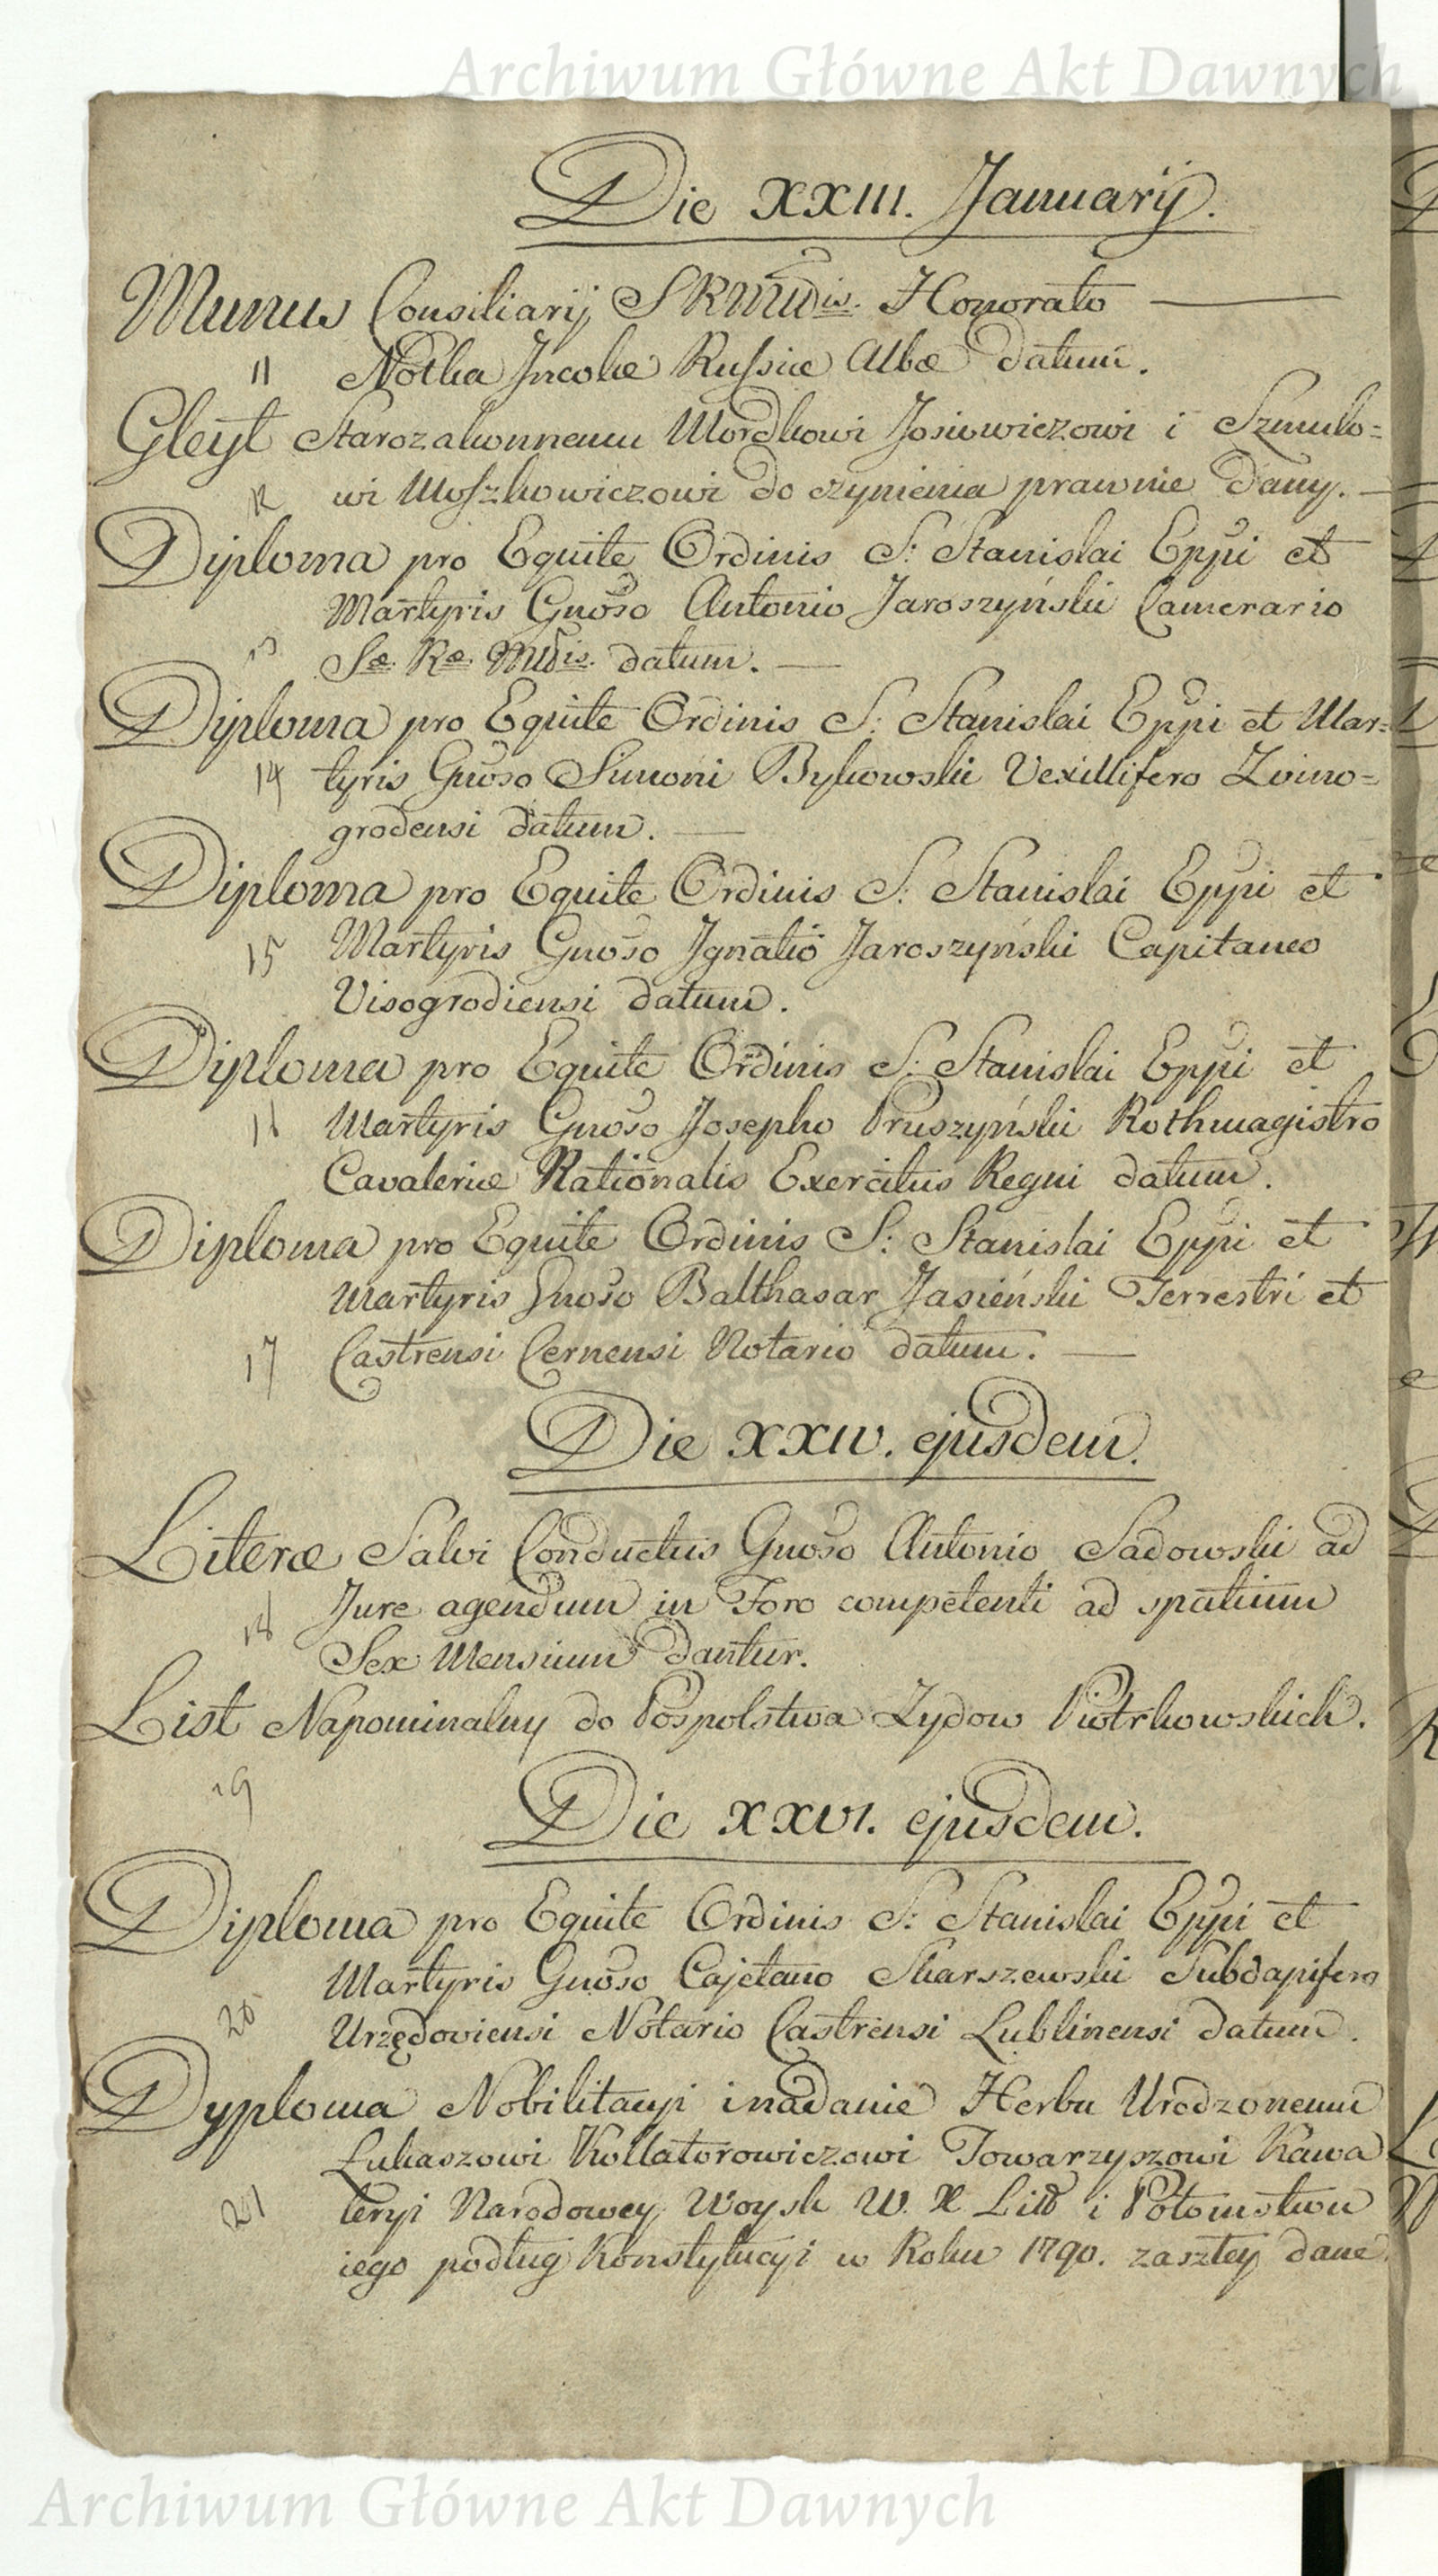 Archiwum Główne Akt Dawnych
Die XXIII. Januarij.
Munus Consiliarij SRMttis. Honorato
11 Notka Jncolæ Russiæ Albæ datum.
Gleyt Starozakonnemu Mordkowi Josiowiczowi i Szmulo=
12 wi Moszkowiczowi do czynienia prawnie dany.
Diploma pro Equite Ordinis S: Stanislai Eppi et
Martyris Gnoso Antonio Jaroszyński Camerario
13 Sæ. Ræ. Mttis. datum.
Diploma pro Equite Ordinis S: Stanislai Eppi et Mar=
14 tyris Gnoso Simoni Bykowski Vexillifero Zvino=
grodensi datum.
Diploma pro Equite Ordinis S: Stanislai Eppi et
15 Martyris Gnoso Jgnatio Jaroszyński Capitaneo
Visogrodiensi datum.
Diploma pro Equite Ordinis S: Stanislai Eppi et
16 Martyris Gnoso Josepho Pruszyński Rothmagistro
Cavaleriæ Nationalis Exercitus Regni datum.
Diploma pro Equite Ordinis S: Stanislai Eppi et
Martyris Gnoso Balthasar Jasieński Terrestri et
17 Castrensi Cernensi Notario datum.
Die XXIV. ejusdem.
Literæ Salvi Conductus Gnoso Antonio Sadowski ad
18 Jure agendum in Foro competenti ad spatium
Sex Mensium dantur.
List Napominalny do Pospolstwa Zydow Piotrkowskich.
19
Die XXVI. ejusdem.
Diploma pro Equite Ordinis S: Stanislai Eppi et
Martyris Gnoso Cajetano Skarszewski Subdapifero
20 Urzędoviensi Notario Castrensi Lublinensi datum.
Dyploma Nobilitacyi i nadanie Herbu Urodzonemu
Łukaszowi Kollatorowiczowi Towarzyszowi Kawa
21 leryi Narodowey Woysk W. X Litt i Potomstwu
iego podług Konstytucyi w Roku 1790. zaszłey dane
Archiwum Główne Akt Dawnych